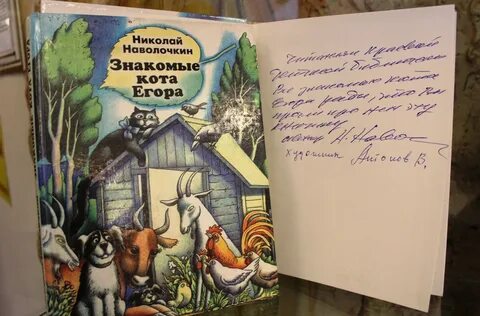 Николай
Наволочкин
Знакомые
кота
Егора
Читателям краевой
детской библиотеки
Все знакомые кота
Егора рады, что Вы
про них эту
книжку
автор Н. Наво
художник Антонов В.